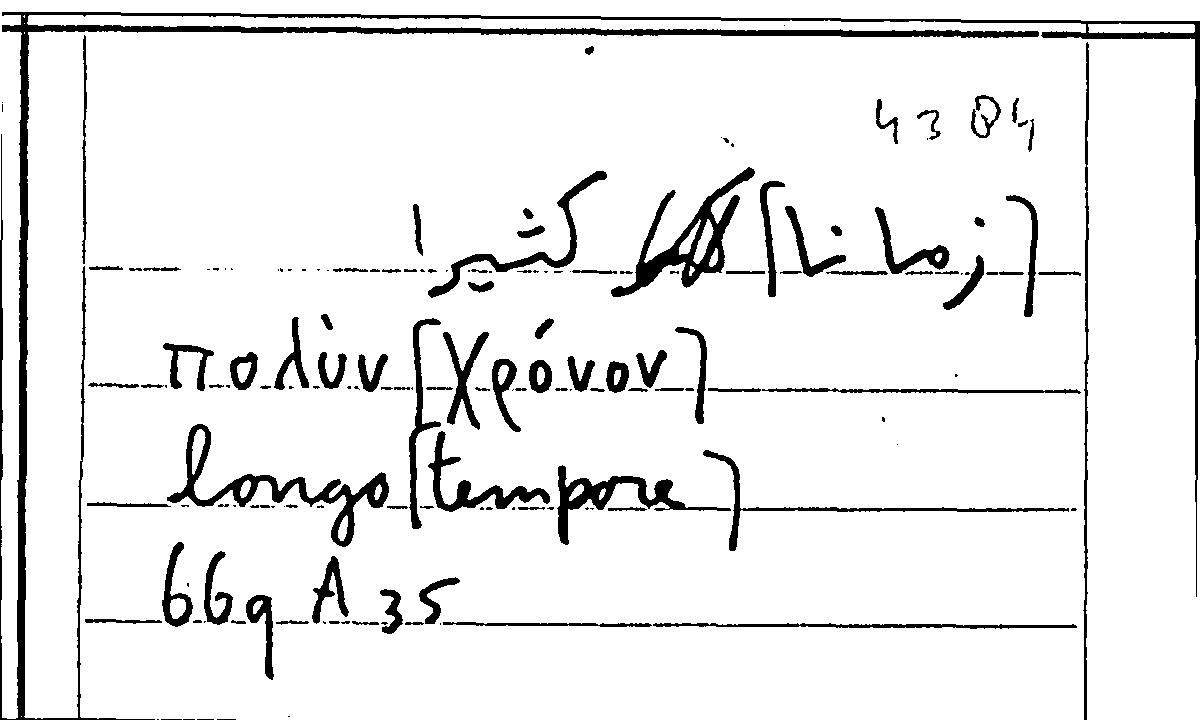 4304
[زمانا] كثيرا
πολὺν [χρόνον]
longo [tempore]
669 A 35